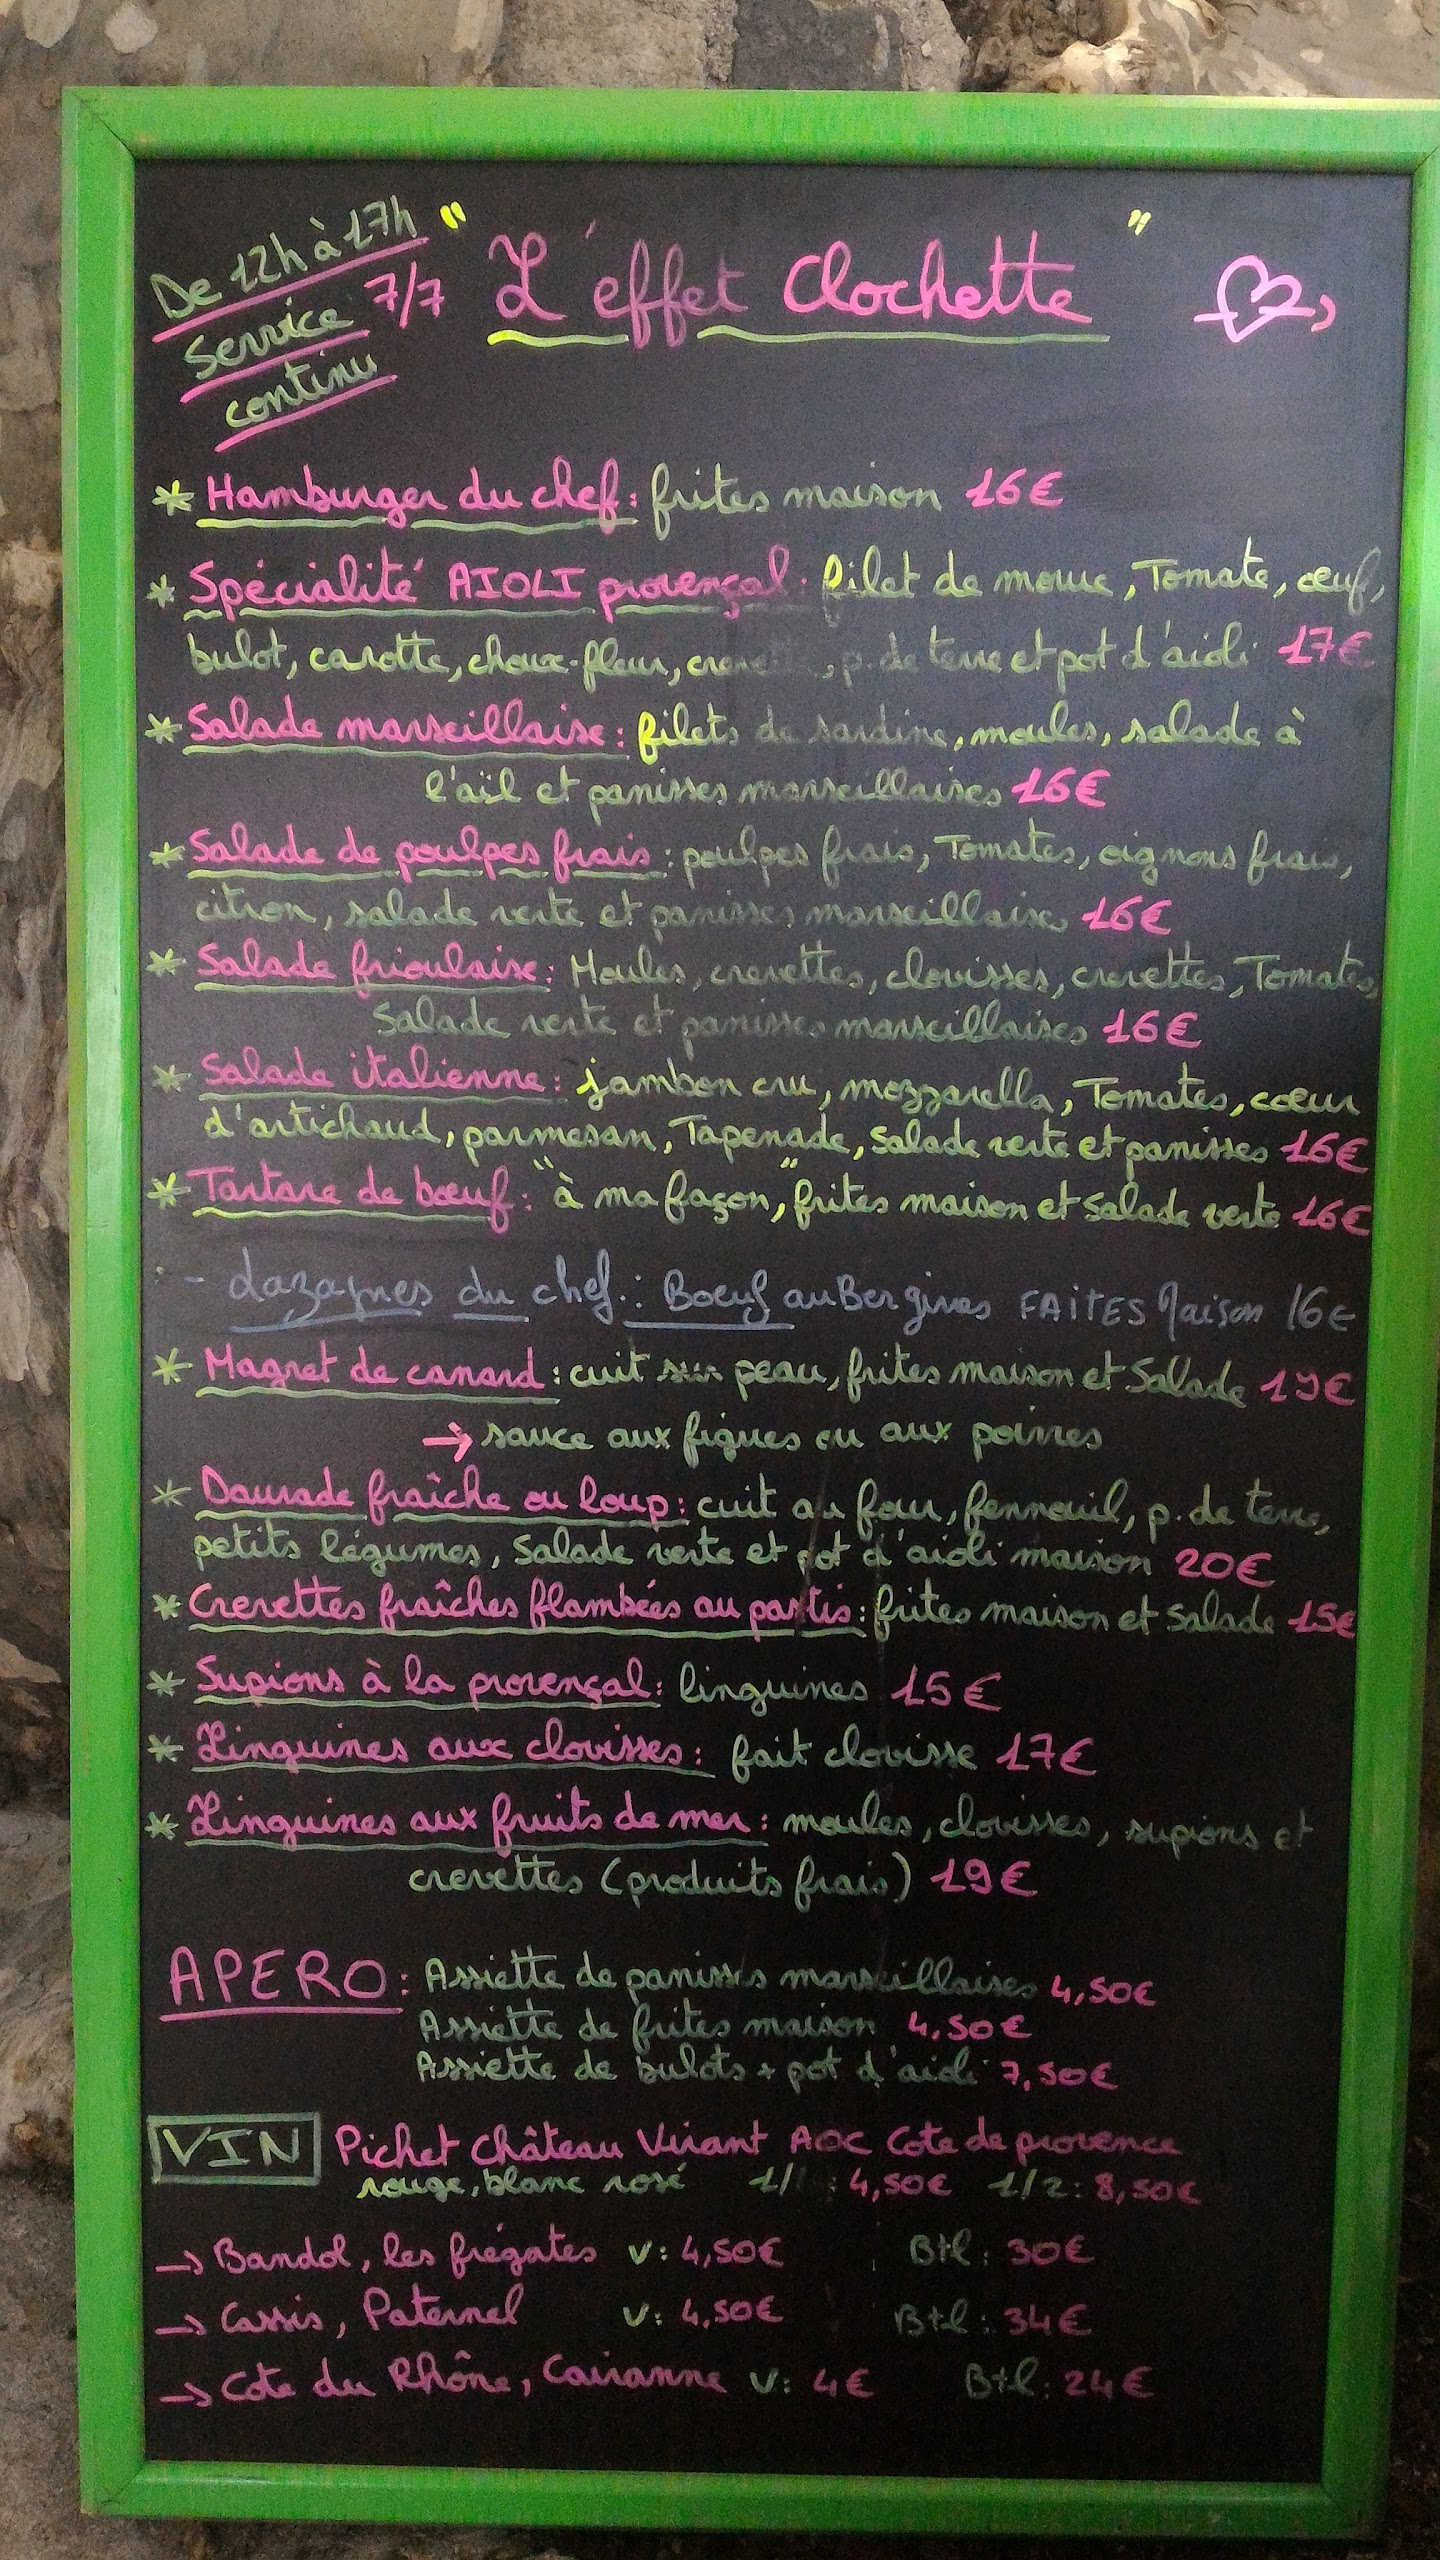 De 12h à 17h
Service 7/7
continu
"L'effet Clochette"
* Hamburger du chef : frites maison 16€
* Spécialité AIOLI provençal : filet de morue, Tomate, œuf,
bulot, carotte, choux-fleur, crevette, p. de terre et pot d'aioli 17€
* Salade marseillaise : filets de sardine, moules, salade à
l'ail et panisses marseillaises 16€
* Salade de poulpes frais : poulpes frais, Tomates, oignons frais,
citron, salade verte et panisses marseillaises 16€
* Salade frioulaise : Moules, crevettes, clovisses, crevettes, Tomates,
Salade verte et panisses marseillaises 16€
* Salade italienne : jambon cru, mozzarella, Tomates, coeur
d'artichaud, parmesan, Tapenade, Salade verte et panisses 16€
* Tartare de bœuf : "à ma façon", frites maison et Salade verte 16€
- Lazagnes du chef : Boeuf auBergines FAITES Maison 16€
* Magret de canard : cuit sur peau, frites maison et Salade 19€
→ sauce aux figues ou aux poivres
* Daurade fraîche ou loup : cuit au four, fennouil, p. de terre,
petits légumes, Salade verte et pot d'aioli maison 20€
* Crevettes fraîches flambées au pastis : frites maison et Salade 15€
* Supions à la provençal : linguines 15€
* Linguines aux clovisses : fait clovisse 17€
* Linguines aux fruits de mer : moules, clovisses, supions et
crevettes (produits frais) 19€
APERO : Assiette de panisses marseillaises 4,50€
Assiette de frites maison 4,50€
Assiette de bulots + pot d'aioli 7,50€
VIN Pichet Château Virant AOC Cote de provence
rouge, blanc rosé 1/ : 4,50€ 1/2 : 8,50€
→ Bandol, les frégates V : 4,50€ Btl : 30€
→ Cassis, Paternel V : 4,50€ Btl : 34€
→ Cote du Rhône, Cairanne V : 4€ Btl : 24€